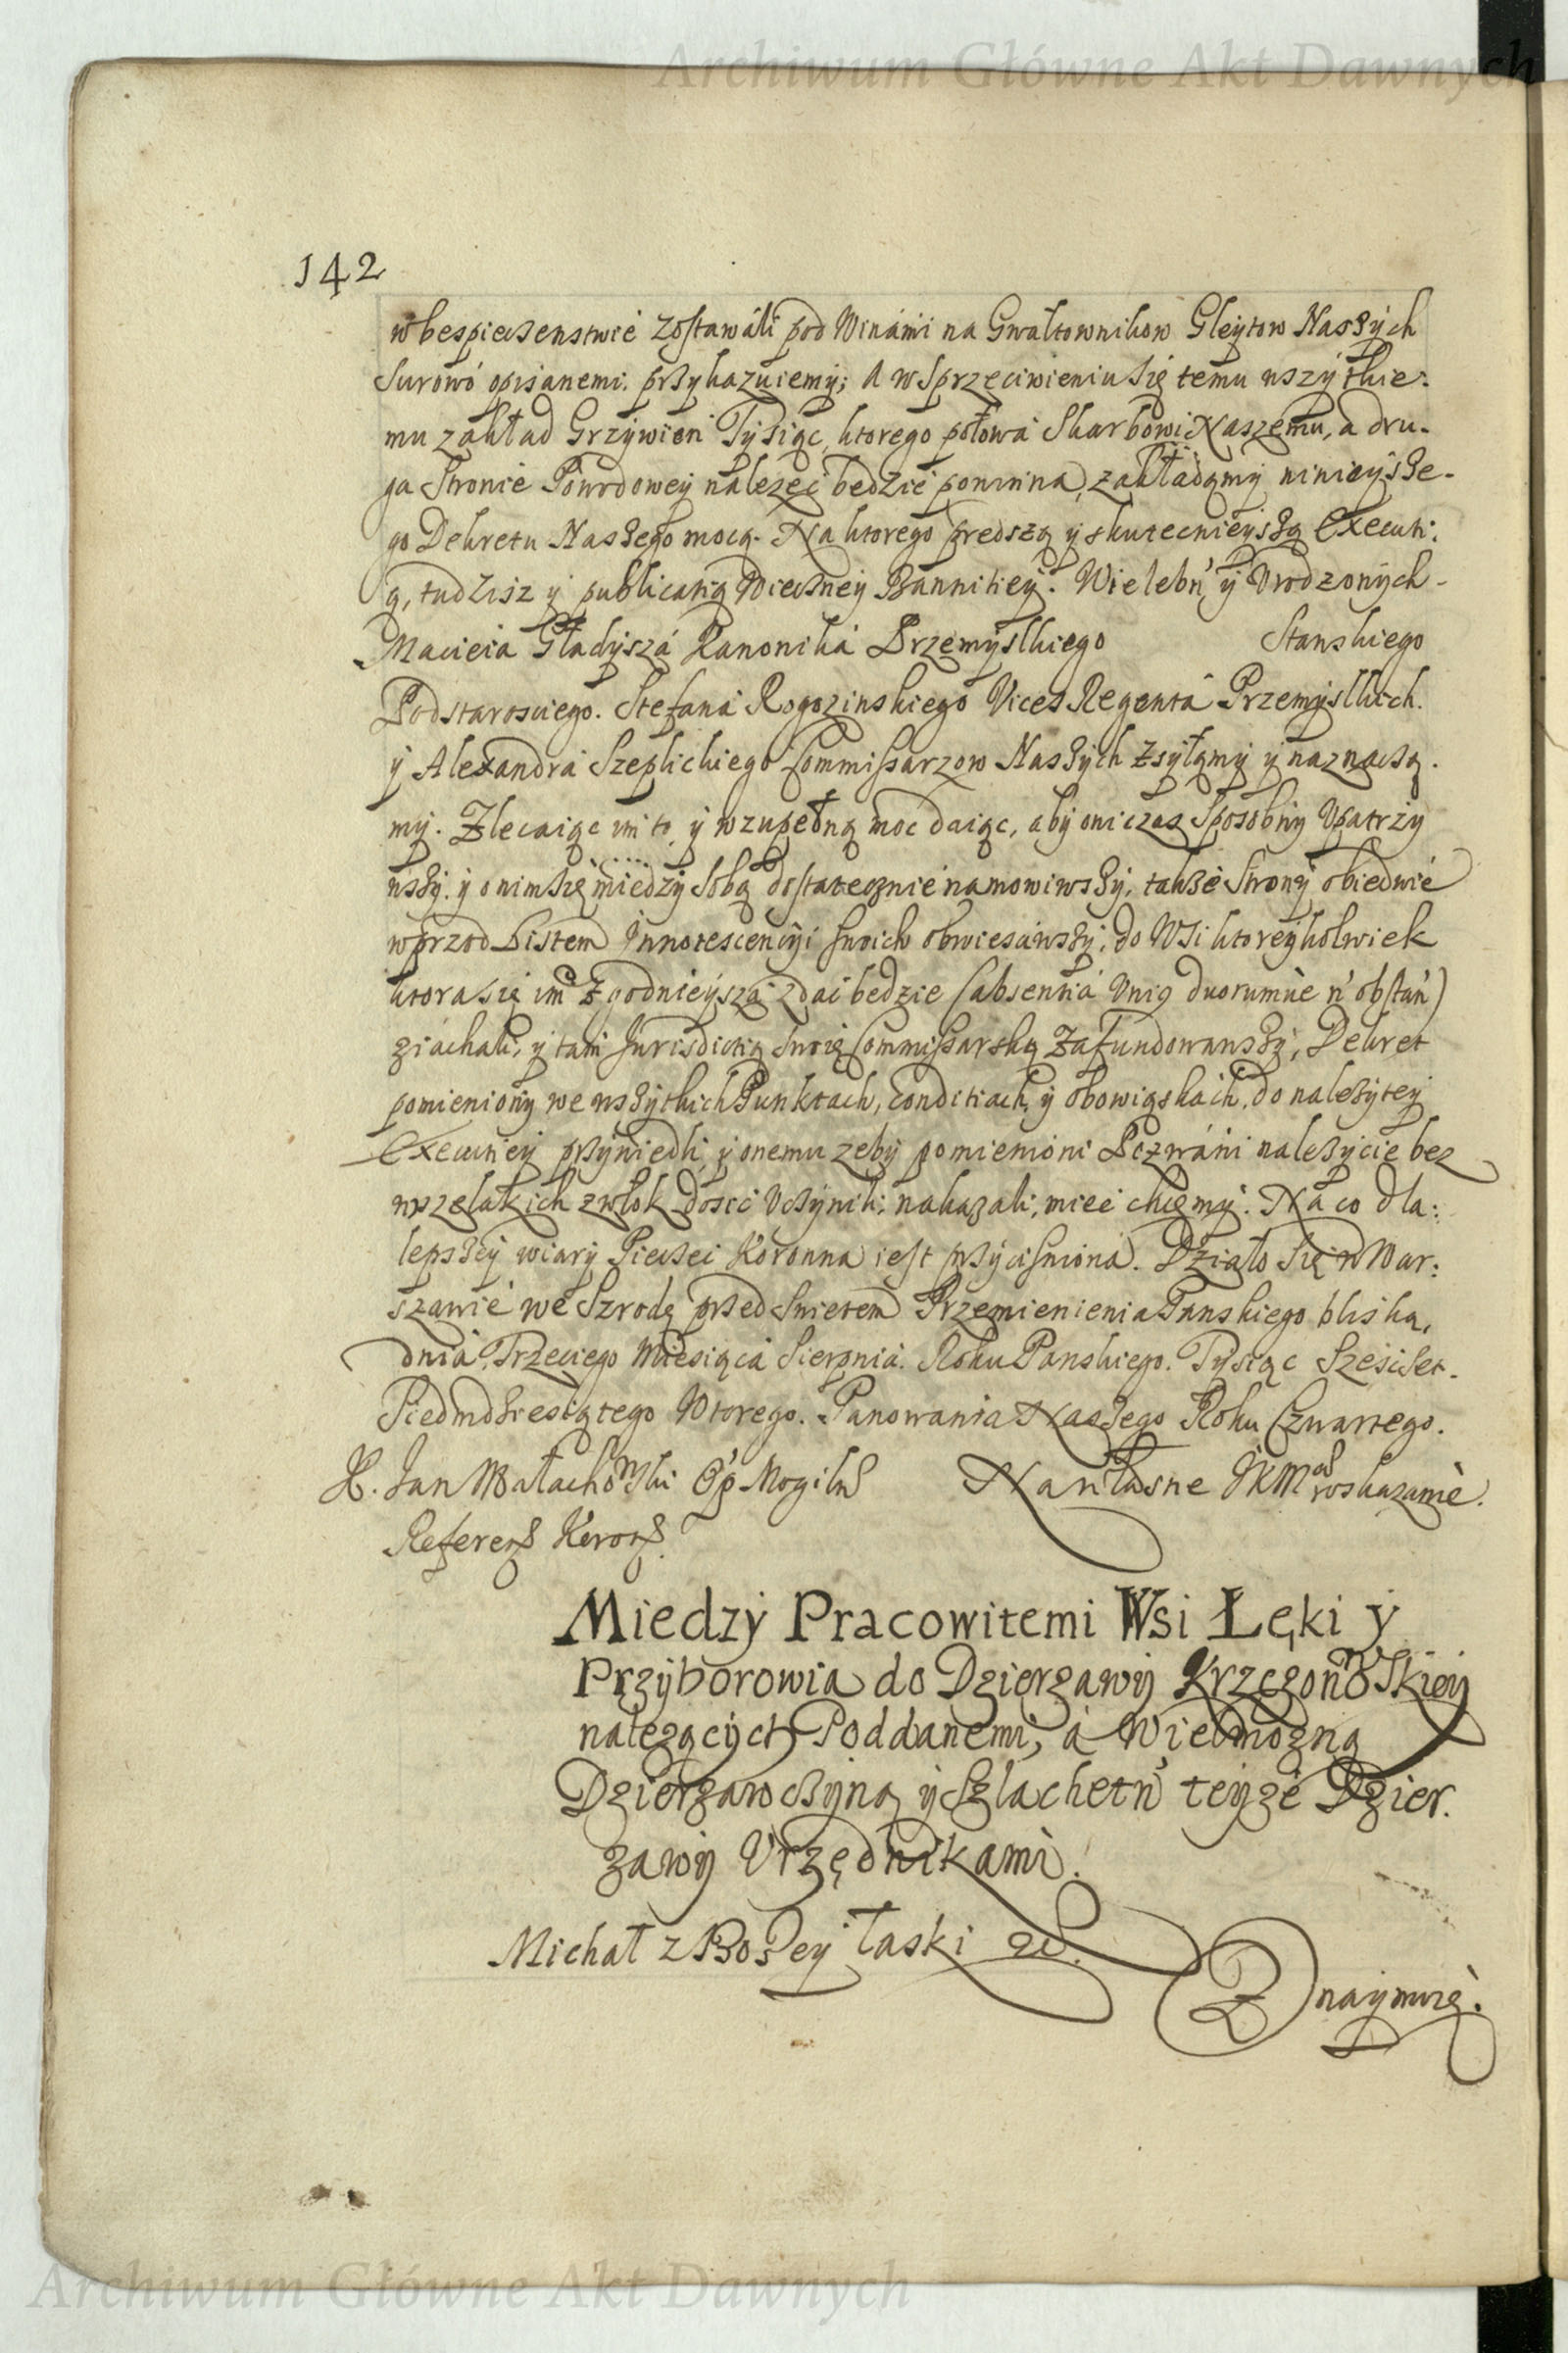 Archiwum Główne Akt Dawnych
142
w bespieczenstwie zostawáli pod Winámi na Gwałtownikow Gleytow Naszych
surowo opisanemi. przykazuiemy; A w sprzeciwieniu się temu wszytkie:
mu zakład Grzywien Tysiąc, ktorego połowá Skarbowi Naszemu, a dru-
ga Stronie Powodowey należeć bedzie powinna, zakładamy ninieysze-
go Dekretu Naszego mocą. Na ktorego predszą y skutecnieyszą Executi:
ą, tudzisz y publicatią Wieczney Bannitiey. Wielebn y Urodzonych-
Macieia Gładyszá Kanoniká Przemyslkiego Stanskiego
Podstarosciego. Stefaná Rogozinskiego Vices Regentá Przemyslkich.
y Alexandrá Szeplickiego Commissarzow Naszych zsyłamy y naznaczą.
my. Zlecaiąc im to, y wzupełną moc daiąc, aby oni czas sposobny upatrzy
wszy. y o nim się miedzy sobą dostatecznie namowiwszy, także Strony obiedwie
wprzod Listem Innotescencyi swoich obwiesciwszy, do Wsi ktoreykolwiek
ktora się im zgodnieysza zdać bedzie (absentiá Unig duorumùe n obstań)
ziáchali, y tam Jurisdictią swoię Commissarską zafundowawszy, Dekret
pomieniony we wszytkich Punktach, Conditiach, y obowiąskách, do należytey
Executiey przywiedli, y onemu zeby pomienioni Pozwáni należycie bez
wszelakich zwłok dosić uczynili; nakazali, mieć chcemy. Na co dla:
lepszey wiary Pieczeć Koronna iest przyciśniona. Działo się w War:
szawie we Szrodę przed Swietem Przemienienia Panskiego bliską,
dniá Trzeciego Miesiącá Sierpniá. Roku Panskiego. Tysiąc Szescset.
Siedmdziesiątego Wtorego. Panowania Naszego Roku Czwartego.
X. Jan Małachowski Op Mogiln Na własne JKMci roskazanie.
Referen Koron
Miedzy Pracowitemi Wsi Łęki y
Przyborowia do Dzierzawy Krzeczonowskiey
należących Poddanemi, á Wielmożną
Dzierzawczyną y Szlachetn teyże Dzier.
zawy Urzędnikami.
Michał z Bożey łaski etc.
Znaymuię.
Archiwum Główne Akt Dawnych